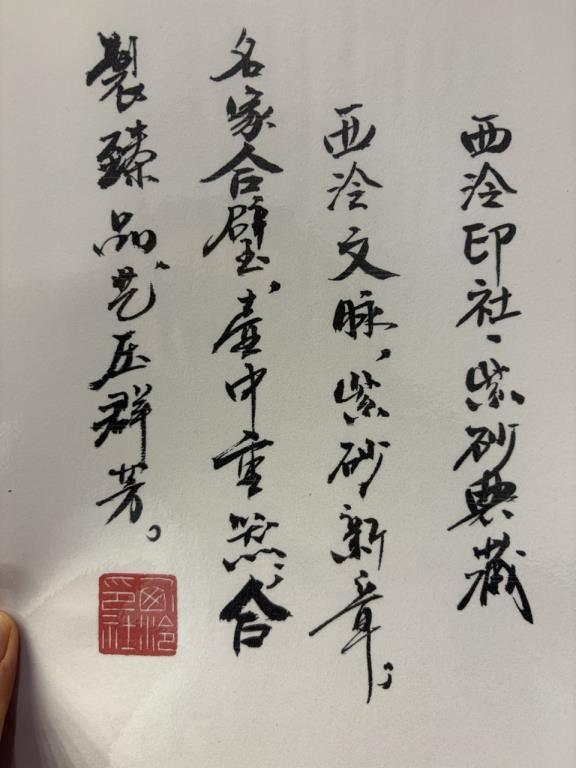 西泠印社、紫砂典藏
西泠文脉，紫砂新章。
名家合璧，壶中重器；合
製臻品，艺压群芳。
西泠印社